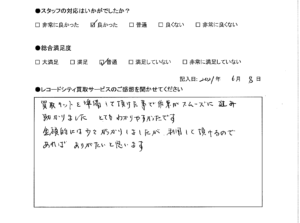 ●スタッフの対応はいかがでしたか?
□非常に良かった ☑良かった □普通 □良くない □非常に良くない
●総合満足度
□大満足 □満足 ☑普通 □満足していない □非常に満足していない
記入日: 2021年 6月 8日
●レコードシティ買取サービスのご感想を聞かせてください
買取キットを準備して頂けた事で作業がスムーズに
助かりました とてもわかりやすかったです
金額的には少々 しましたが 利用して頂けるので
あれば ありがたいと思います